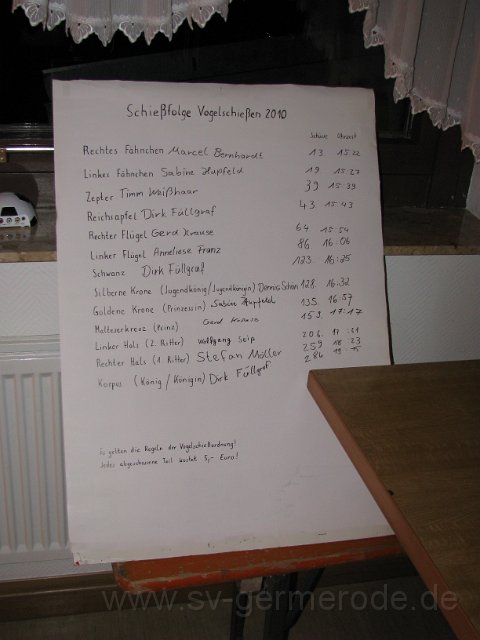 Schießfolge Vogelschießen 2010
Schüsse Uhrzeit
Rechtes Fähnchen Marcel Bernhardt 13. 15:22
Linkes Fähnchen Sabine Hupfeld 19. 15:27
Zepter Timm Weißhaar 39 15:39
Reichsapfel Dirk Füllgraf 43 15:43
Rechter Flügel Gerd Krause 64 15:54
Linker Flügel Anneliese Franz 86 16:06
Schwanz Dirk Füllgraf 123. 16:25
Silberne Krone (Jugendkönig/Jugendkönigin) Dennis Schon 128. 16:32
Goldene Krone (Prinzessin) Sabine Hupfeld 135. 16:57
Malteserkreuz (Prinz) Gerd Krause 153. 17:17
Linker Hals (2. Ritter) Wolfgang Seip 206. 17:51
Rechter Hals (1. Ritter) Stefan Möller 259 18:23
Korpus (König/Königin) Dirk Füllgraf 286
Es gelten die Regeln der Vogelschießordnung!
Jedes abgeschossene Teil kostet 5,- Euro!
www.sv-germerode.de